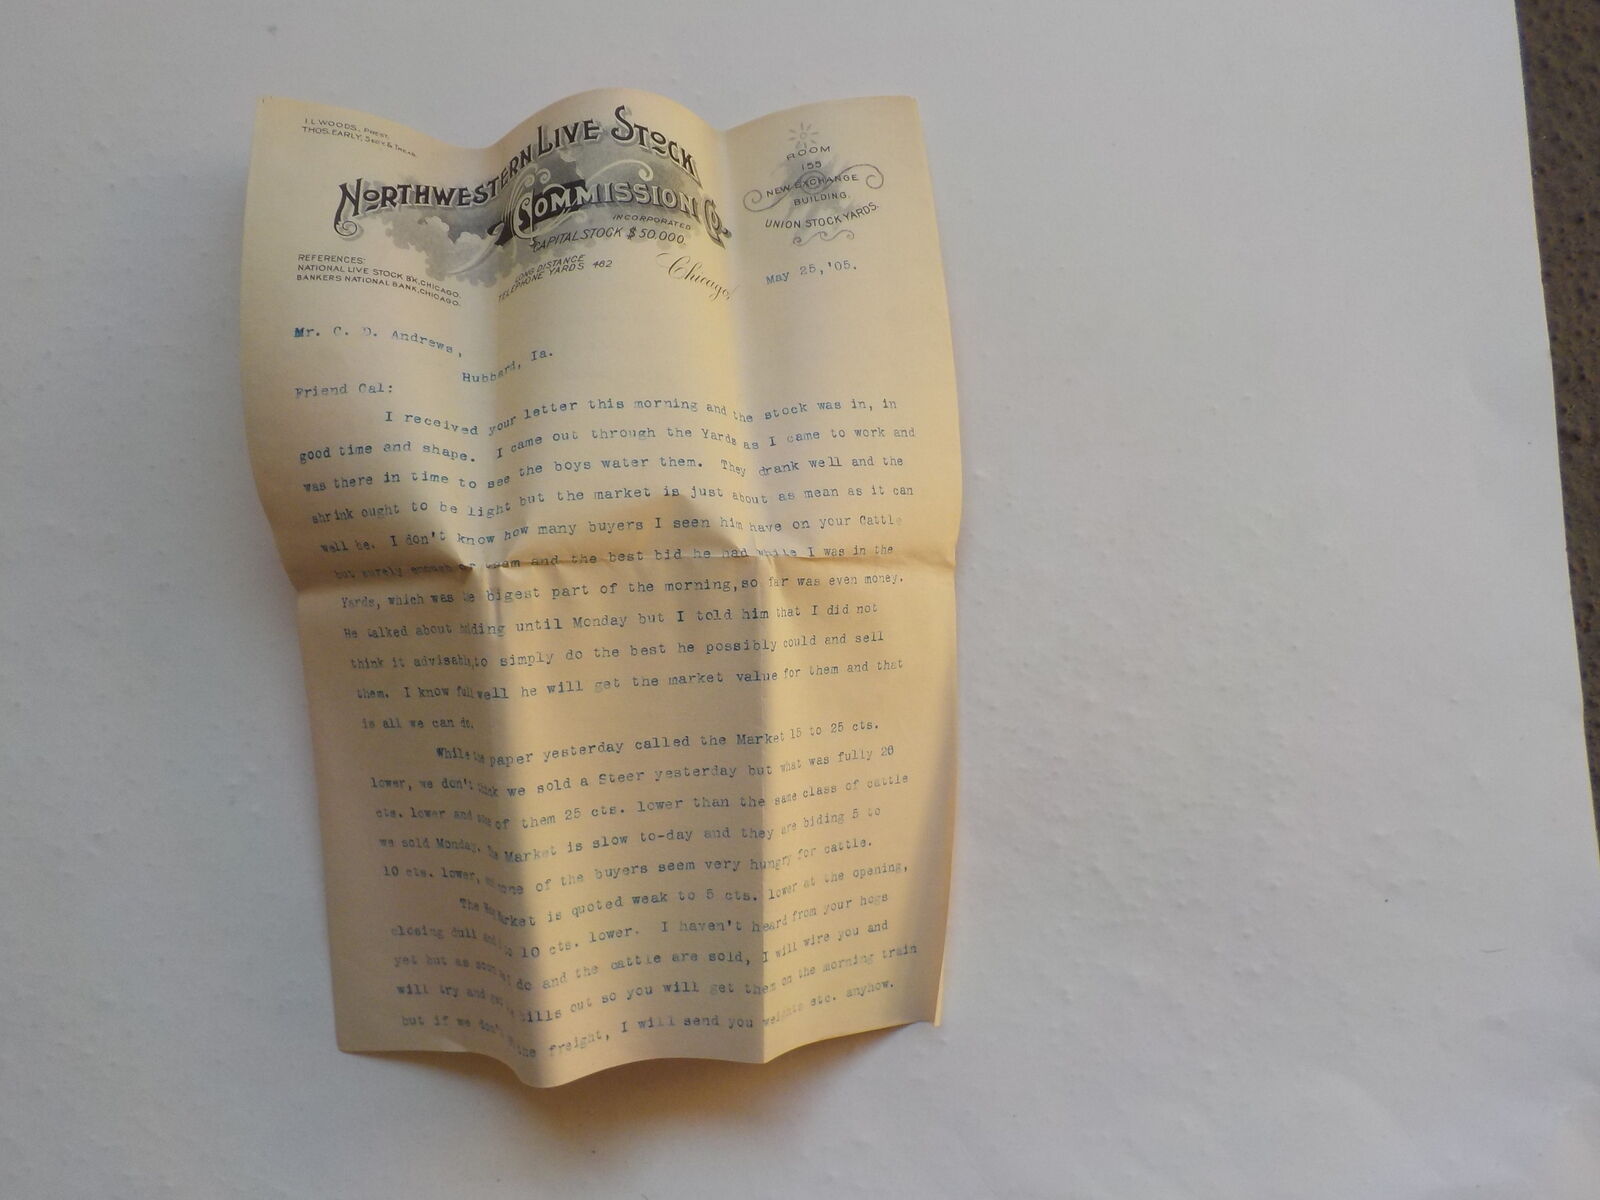 I. L. WOODS, PREST.
THOS. EARLY, SECY & TREAS.
NORTHWESTERN LIVE STOCK
COMMISSION CO.
INCORPORATED
CAPITAL STOCK $50,000.
ROOM
155
NEW EXCHANGE
BUILDING.
UNION STOCK YARDS.
REFERENCES:
NATIONAL LIVE STOCK BK, CHICAGO.
BANKERS NATIONAL BANK, CHICAGO.
LONG DISTANCE
TELEPHONE YARDS 462
Chicago,
May 25, '05.
Mr. C. D. Andrews,
Hubbard, Ia.
Friend Cal:
I received your letter this morning and the stock was in, in
good time and shape. I came out through the Yards as I came to work and
was there in time to see the boys water them. They drank well and the
shrink ought to be light but the market is just about as mean as it can
well be. I don't know how many buyers I seen him have on your Cattle
but surely enough of them and the best bid he had while I was in the
Yards, which was the bigest part of the morning, so far was even money.
He talked about holding until Monday but I told him that I did not
think it advisable, to simply do the best he possibly could and sell
them. I know full well he will get the market value for them and that
is all we can do.
While the paper yesterday called the Market 15 to 25 cts.
lower, we don't think we sold a Steer yesterday but what was fully 20
cts. lower and some of them 25 cts. lower than the same class of cattle
we sold Monday. The Market is slow to-day and they are biding 5 to
10 cts. lower, none of the buyers seem very hungry for cattle.
The Hog Market is quoted weak to 5 cts. lower at the opening,
closing dull and 10 cts. lower. I haven't heard from your hogs
yet but as soon as I do and the cattle are sold, I will wire you and
will try and get the bills out so you will get them on the morning train
but if we don't the freight, I will send you weights etc. anyhow.